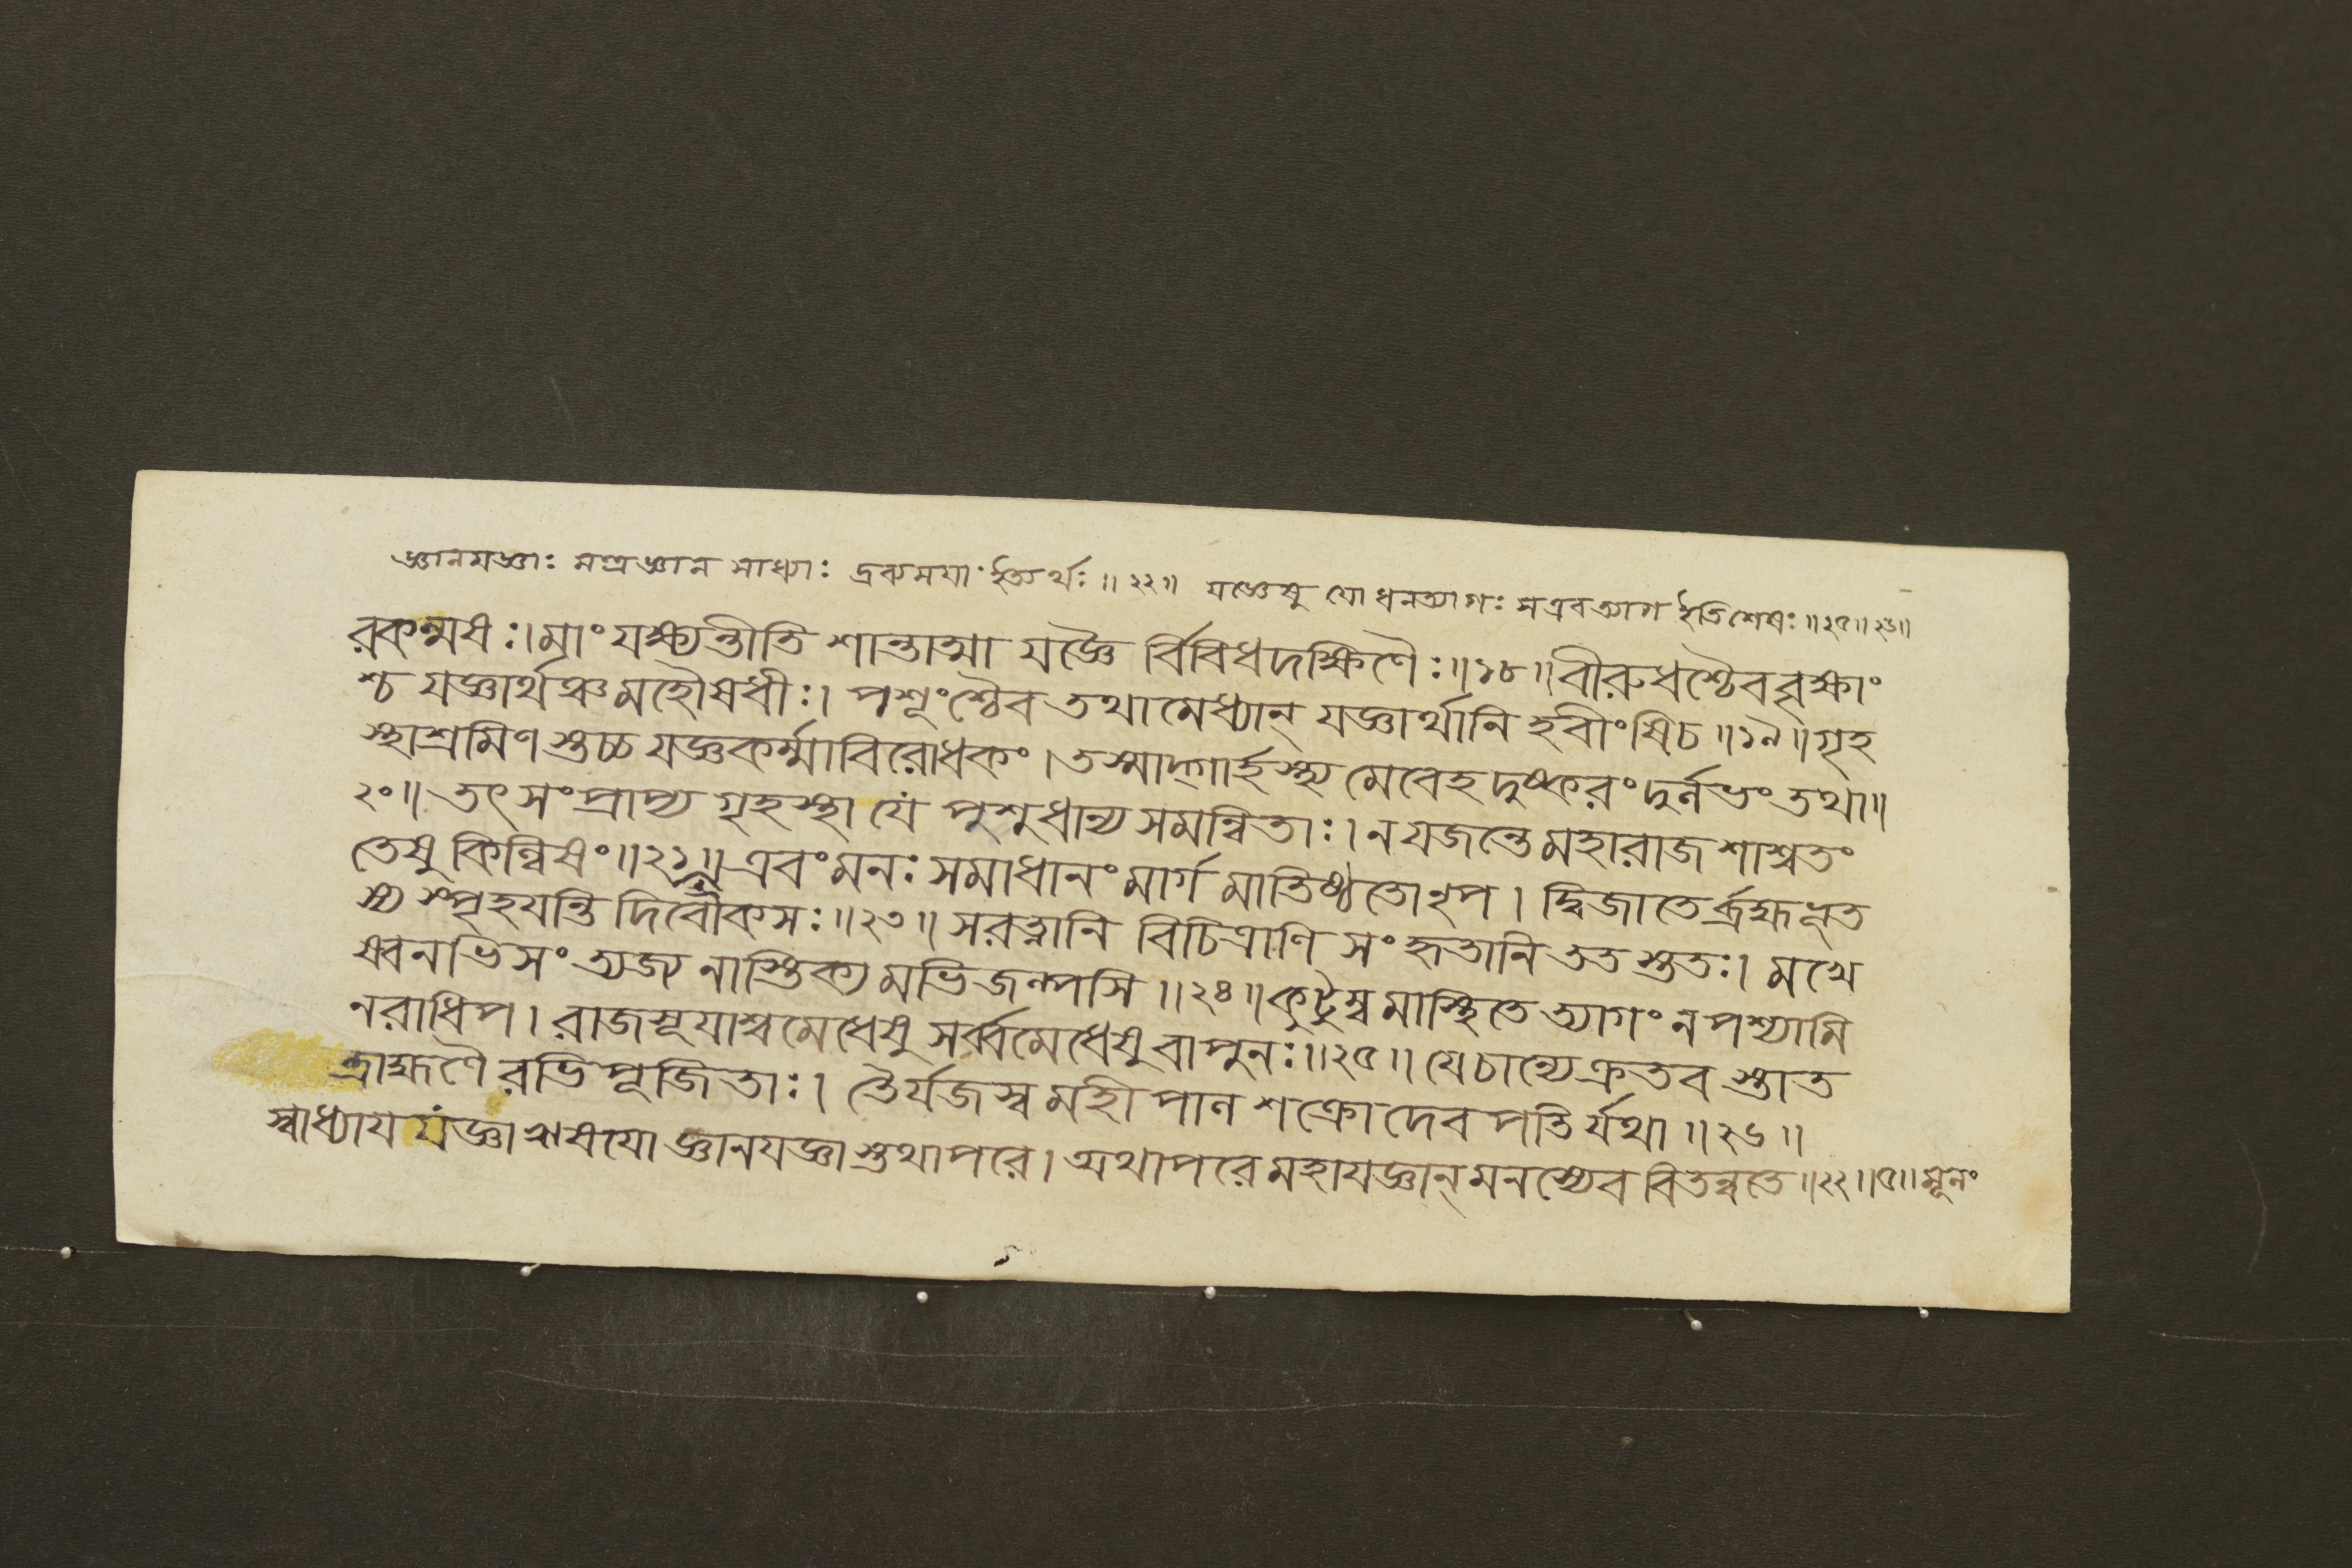 জ্ঞানযজ্ঞাঃ মপ্রজ্ঞান সাধ্যাঃ ইত্যর্থঃ ॥ ২২॥ যজ্ঞেষু যো ধনত্যাগঃ সএবত্যাগ ইতিশেষঃ ॥২৫॥২৬॥
রকল্মষঃ।মাং যক্ষ্যন্তীতি শান্তাত্মা যজ্ঞৈ র্ব্বিবিধদক্ষিণৈঃ॥১৮॥বীরুধশ্চৈববৃক্ষাং
শ্চ যজ্ঞার্থঞ্চমহৌষধীঃ। পশূংশ্চৈব তথামেধ্যান্ যজ্ঞার্থানি হবীংষিচ॥১৯॥গৃহ
স্থাশ্রমিণস্তচ্চ যজ্ঞকর্ম্মাবিরোধকং।তস্মাদ্গার্হস্থ্য মেবেহ দুষ্করং দুর্লভং তথা॥
২০॥ তৎ সংপ্রাপ্য গৃহস্থা যে পুশুধান্য সমন্বিতাঃ। নযজন্তে মহারাজ শাশ্বতং
তেষু কিল্বিষং॥২১॥ এবং মনঃ সমাধানং মার্গ মাতিষ্ঠতো নৃপ। দ্বিজাতের্ব্রহ্মভূত
স্য স্পৃহযন্তি দিবৌকসঃ॥২৩॥ সরত্নানি বিচিত্রাণি সংহৃতানি ততস্ততঃ। মখে
ষ্বনভিসংত্যজ্য নাস্তিক্য মভিজল্পসি॥২৪॥কুটুম্ব মাস্থিতে ত্যাগং নপশ্যামি
নরাধিপ। রাজসূযাশ্বমেধেষু সর্ব্বমেধেষু বাপুনঃ॥২৫॥ যেচান্যেক্রতব স্তাত
ব্রাহ্মণৈ রভিপূজিতাঃ। তৈর্যজস্ব মহীপাল শক্রোদেবপতির্যথা॥২৬॥
স্বাধ্যায যজ্ঞা ঋষযো জ্ঞানযজ্ঞা স্তথাপরে। অথাপরে মহাযজ্ঞান্ মনস্যেব বিতন্বতে॥২২॥৫॥মূলং